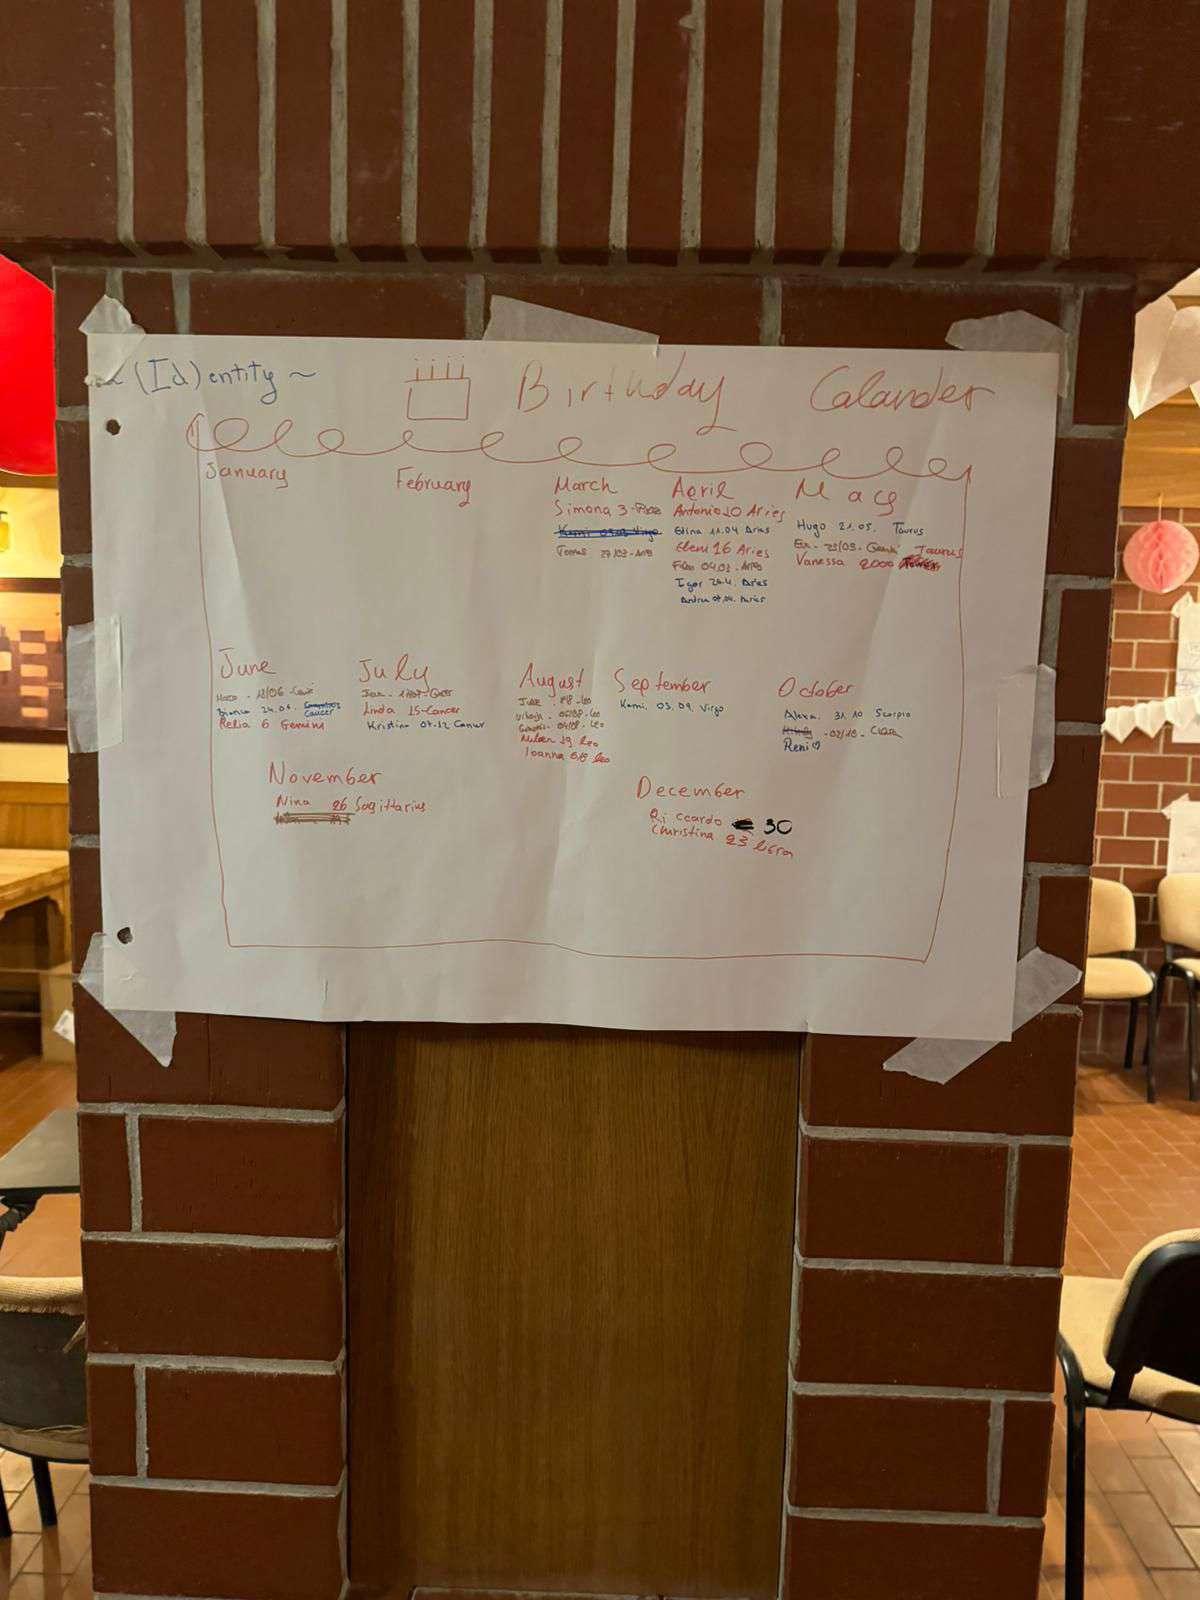 (Id)entity ~
Birthday Calander
January
February
March
Simona 3 -
Tomas 27/03 -
April
Antonio 10 Aries
Elina 11.04 Aries
Eleni 16 Aries
Igor 20.4. Aries
Andrea 07.04. Aries
May
Hugo 21.05. Taurus
Taurus
Vanessa 2000
June
Bianca 24.06.
Cancer
Relia 6 Gemini
July
Linda 15-Cancer
Kristina 07.12 Cancer
August
Leo
Leo
Leo
19 Leo
Ioanna Leo
September
Kami. 03.09. Virgo
October
Alexa. 31.10 Scorpio
- 02/10 -
Reni ♡
November
Nina 26 Sagittarius
December
Ri ccardo 30
Christina 23 libra